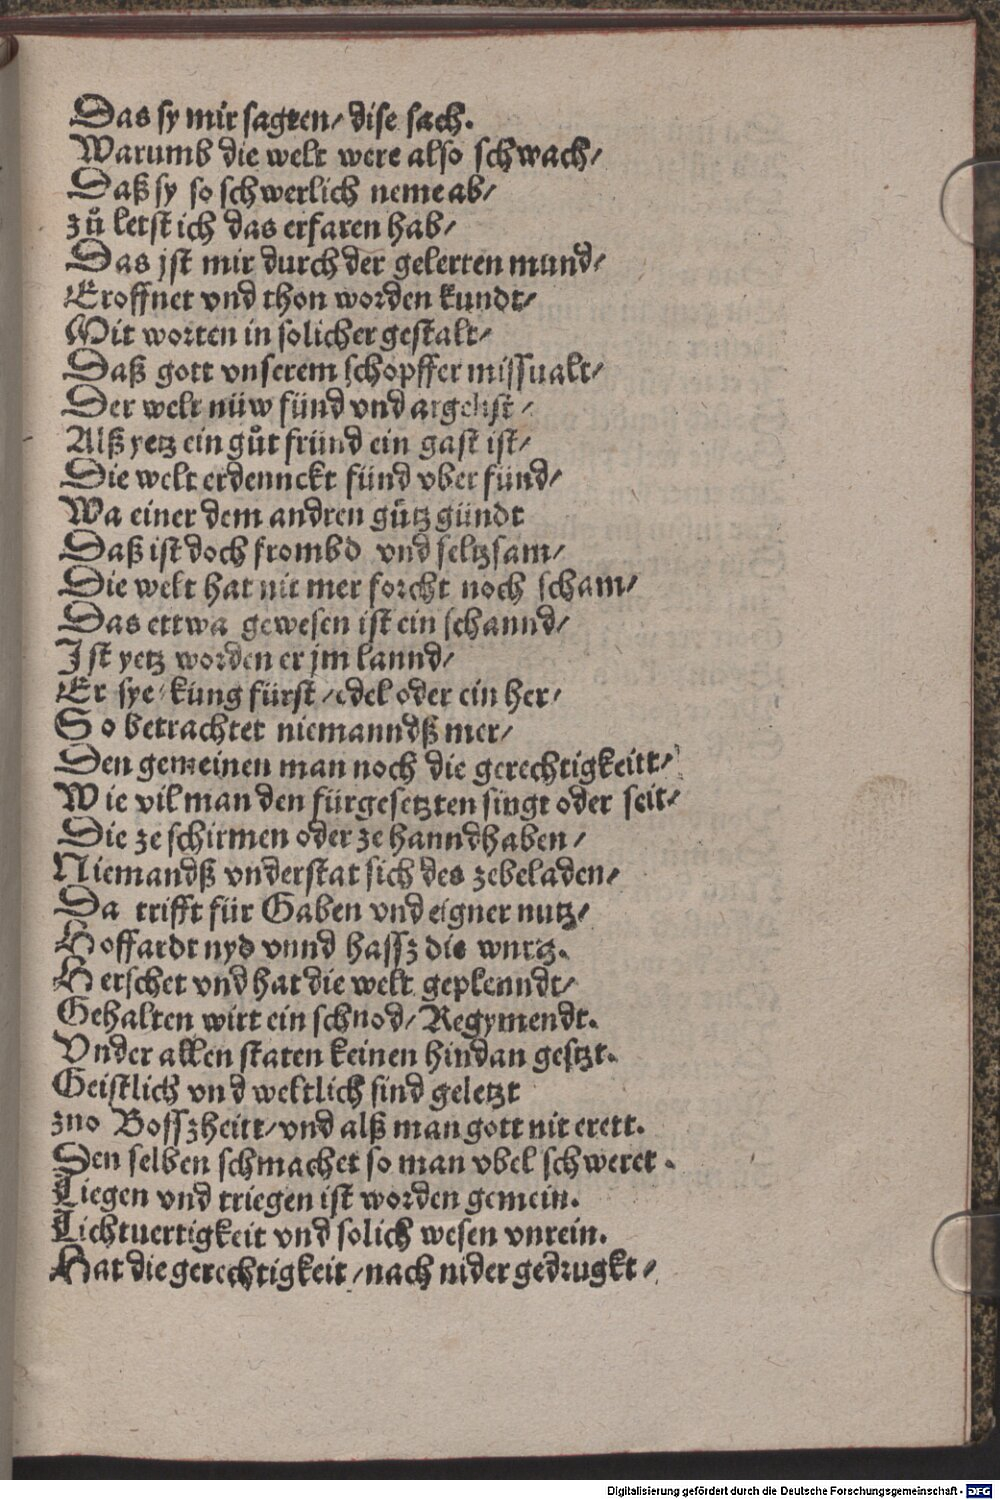 Das sy mir sagten/ dise sach.
Warumb die welt were also schwach/
Daß sy so schwerlich neme ab/
zů letst ich das erfaren hab/
Das jst mir durch der gelerten mund/
Eroffnet vnd thon worden kundt/
Mit worten in solicher gestalt/
Daß gott vnserem schopffer missualt/
Der welt nüw fünd vnd argelist/
Alß yetz ein gůt fründ ein gast ist/
Die welt erdennckt fünd vber fünd/
Wa einer dem andren gůtz gündt
Daß ist doch frombd vnd seltzsam/
Die welt hat nit mer forcht noch scham/
Das ettwa gewesen ist ein schannd/
Ist yetz worden er jm lannd/
Er sye/ küng fürst/ edel oder ein her/
So betrachtet niemanndß mer/
Den gemeinen man noch die gerechtigkeitt/
Wie vil man den fürgesetzten singt oder seit/
Die ze schirmen oder ze hanndhaben/
Niemandß vnderstat sich des zebeladen/
Da trifft für Gaben vnd eigner nutz/
Hoffardt nyd vnnd hassz die wurtz.
Herschet vnd hat die welt geplenndt/
Gehalten wirt ein schnod/ Regymendt.
Vnder allen staten keinen hindan gesetzt.
Geistlich vnd weltlich sind geletzt
zuo Bosszheitt/ vnd alß man gott nit erett.
Den selben schmachet so man vbel schweret.
Liegen vnd triegen ist worden gemein.
Lichtuertigkeit vnd solich wesen vnrein.
Hat die gerechtigkeit/ nach nider gedrugkt/
Digitalisierung gefördert durch die Deutsche Forschungsgemeinschaft - DFG